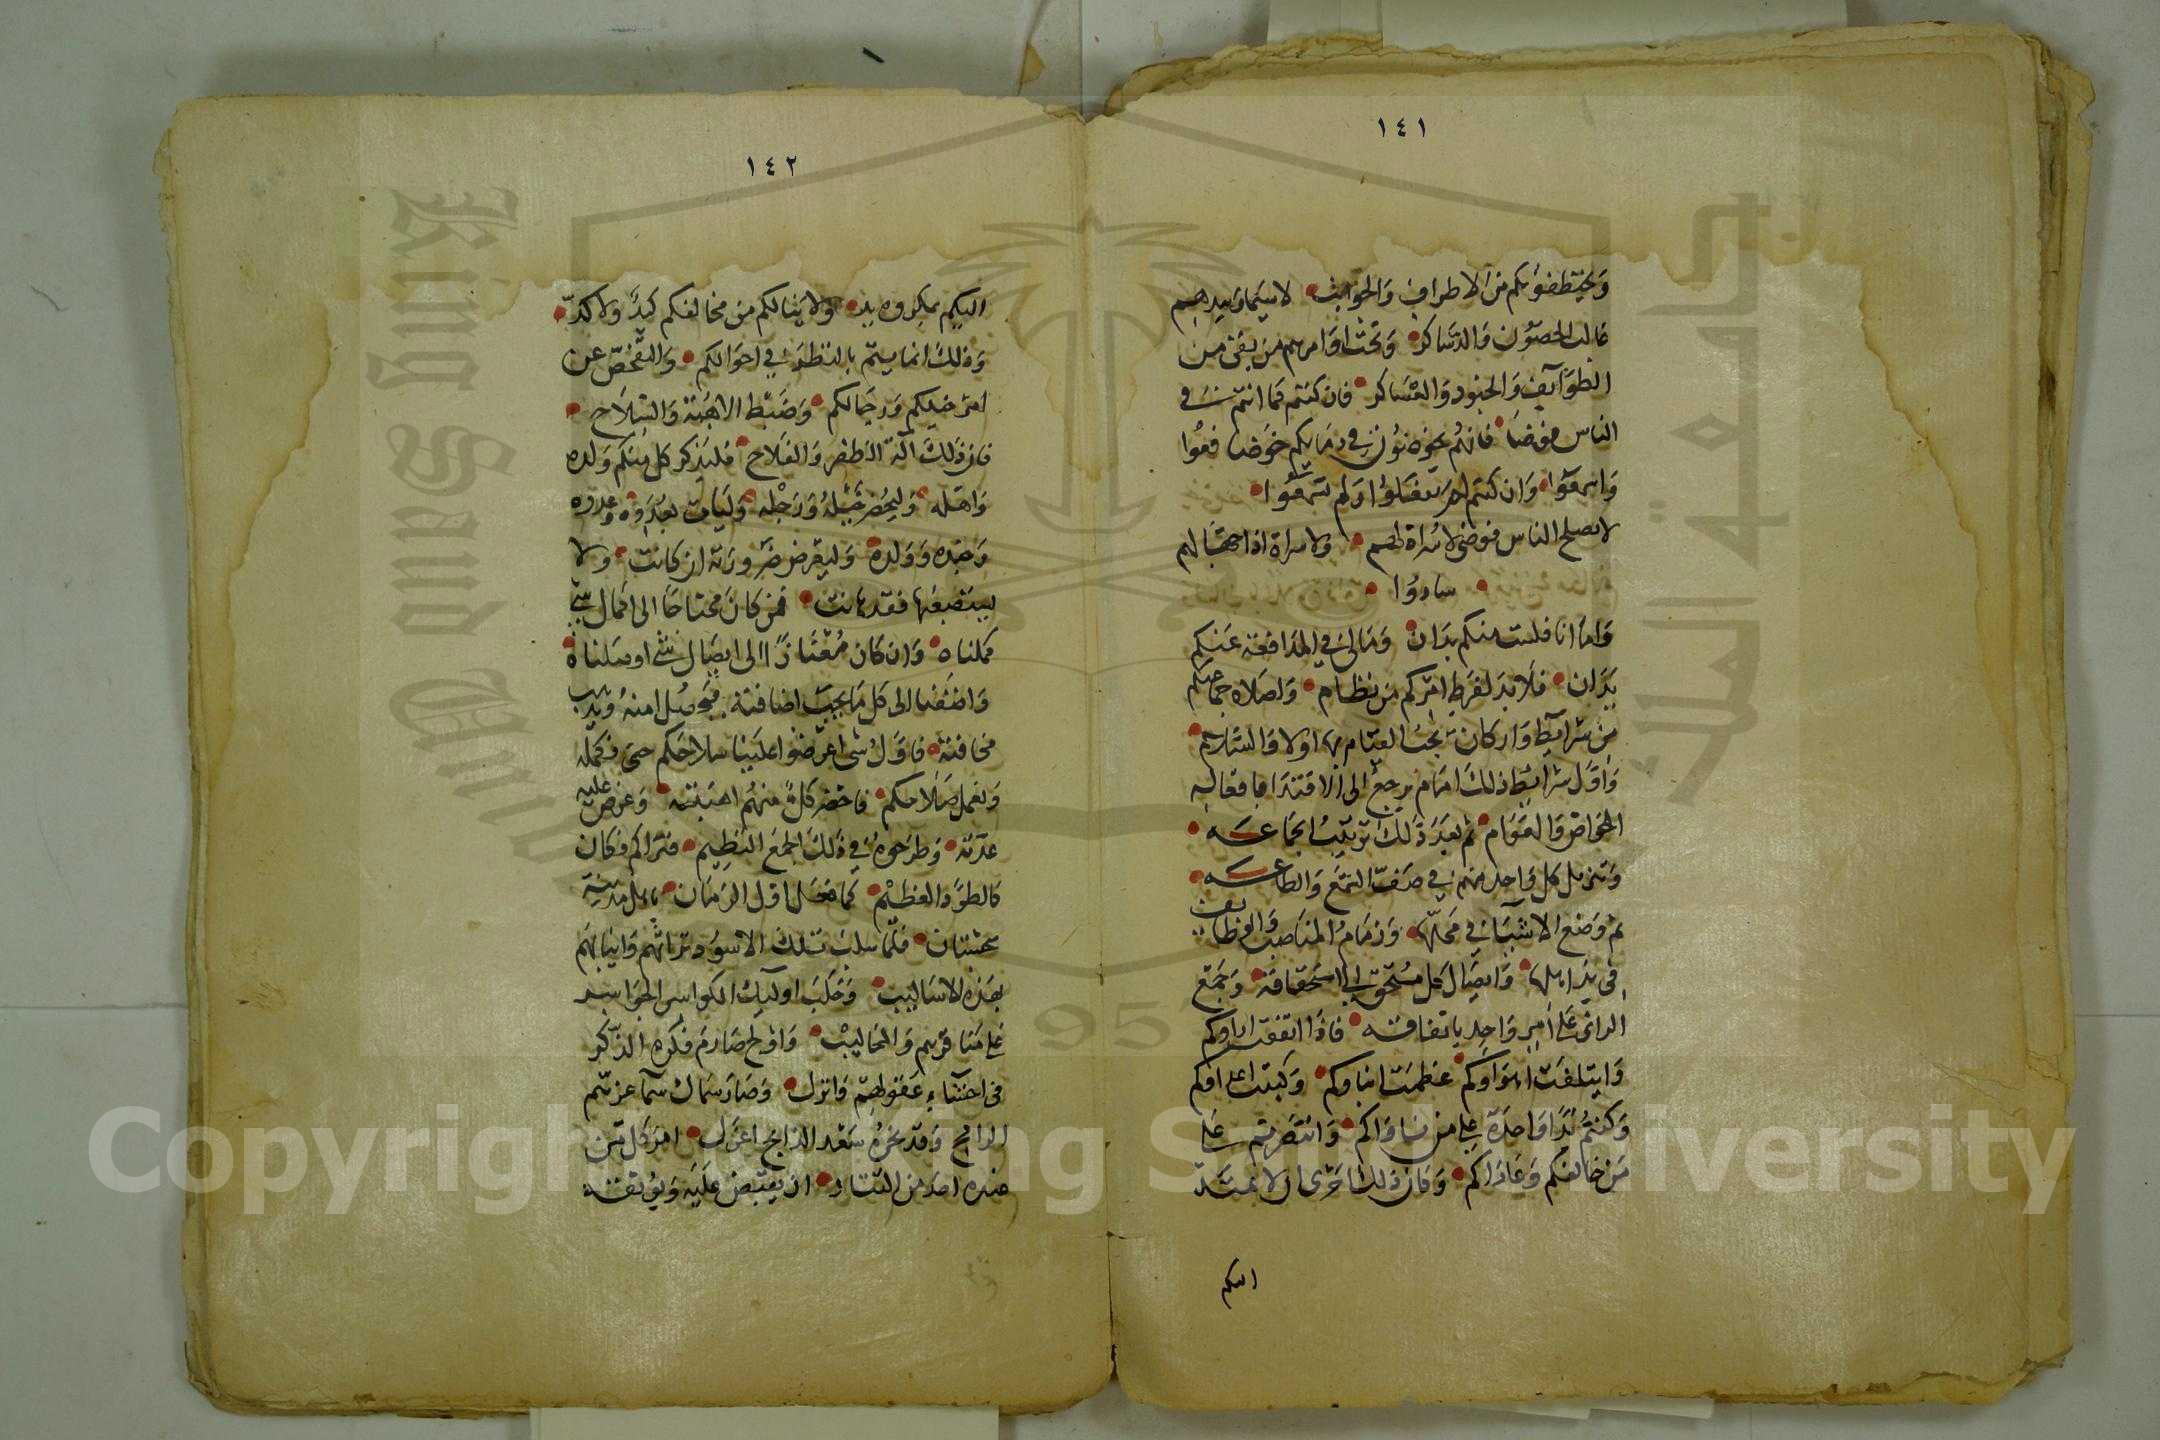 ١٤١
ويختطفونكم من الاطراف والجوانب لا سيما وبيدهم
غالب الحصون والدساكر وتحت اوامرهم من بقى من
الطوايف والجنود والعساكر فان كنتم كما انتم في
الناس فوضا فانهم يخوضون في دمايكم خوضا فعوا
واسمعوا وان كنتم لم تعقلوا ولم تسمعوا
لا يصلح الناس فوضى لا سراة لهم ولا سراة اذا جهالهم
سادوا
واما انا فلست منكم بدان ومالى في المدافعة عنكم
يدان فلا بد لفرط امركم من نظام واصلاه جماعتكم
من شرايط واركان يجب القيام بها اولا والسلام
واول شرايط ذلك امام يرجع الى الاقتدا بافعاله
الخواص والعوام ثم بعد ذلك ترتيب الجماعه
وتنزيل كل واحد منهم في صف السمع والطاعه
ثم وضع الاشيا في محلها وزمام المناصب والوظايف
في يد اهلها وايصال كل مستحق الى استحقاقه وجمع
الراى على امر واحد باتفاقه فاذا اتفقت اراوكم
وايتلفت اهواوكم عظمت ابناوكم وكبتت اعداوكم
وكنتم يدا واحدة على من ناواكم وانتصرتم على
من خالفكم وعاداكم وكان ذلك احرى ان لا تمتد
اليكم
١٤٢
اليكم بمكروه يد ولا ينالكم من مخالفكم كيد ولا كد
وذلك انما يتم بالنظر في احوالكم والتفحص عن
امر خيلكم ورجالكم وضبط الاهبة والسلاح
فان ذلك آلة الظفر والفلاح فليذكر كل منكم ولده
واهله وليحضر خيله ورجله وليات بعدده وعدوه
وجنده وولده وليعرض ضرورته ان كانت ولا
يستضعفها فقد هانت فمن كان محتاجا الى اكمال شي
كملناه وان كان معتازا الى ايصال شي اوصلناه
واضفنا الى كل ما يجب اضافته فيحصل امنه ويذهب
مخافته فاول شي اعرضوا علينا سلاحكم حتى نكمله
ونعمل صلاحكم فاحضر كل منهم اهبته وعرض عليه
عدته وطرحوه في ذلك الجمع النظيم فتراكم فكان
كالطود العظيم كما فعل اول الزمان باهل مدينة
سجستان فلما سلب تلك الاسود براثنهم وانيابهم
بهذه الاساليب وخلب اوليك الكواسر الجواسر
على مناقرهم والمخاليب واولج صارم فكره الذكر
في احشاء عقولهم وانزل وصار سماك سما عزتهم
الرامح وقد نحره سعد الذابح اعزل امر كل من
عنده احد من التتار ان يقبض عليه ويوثقه